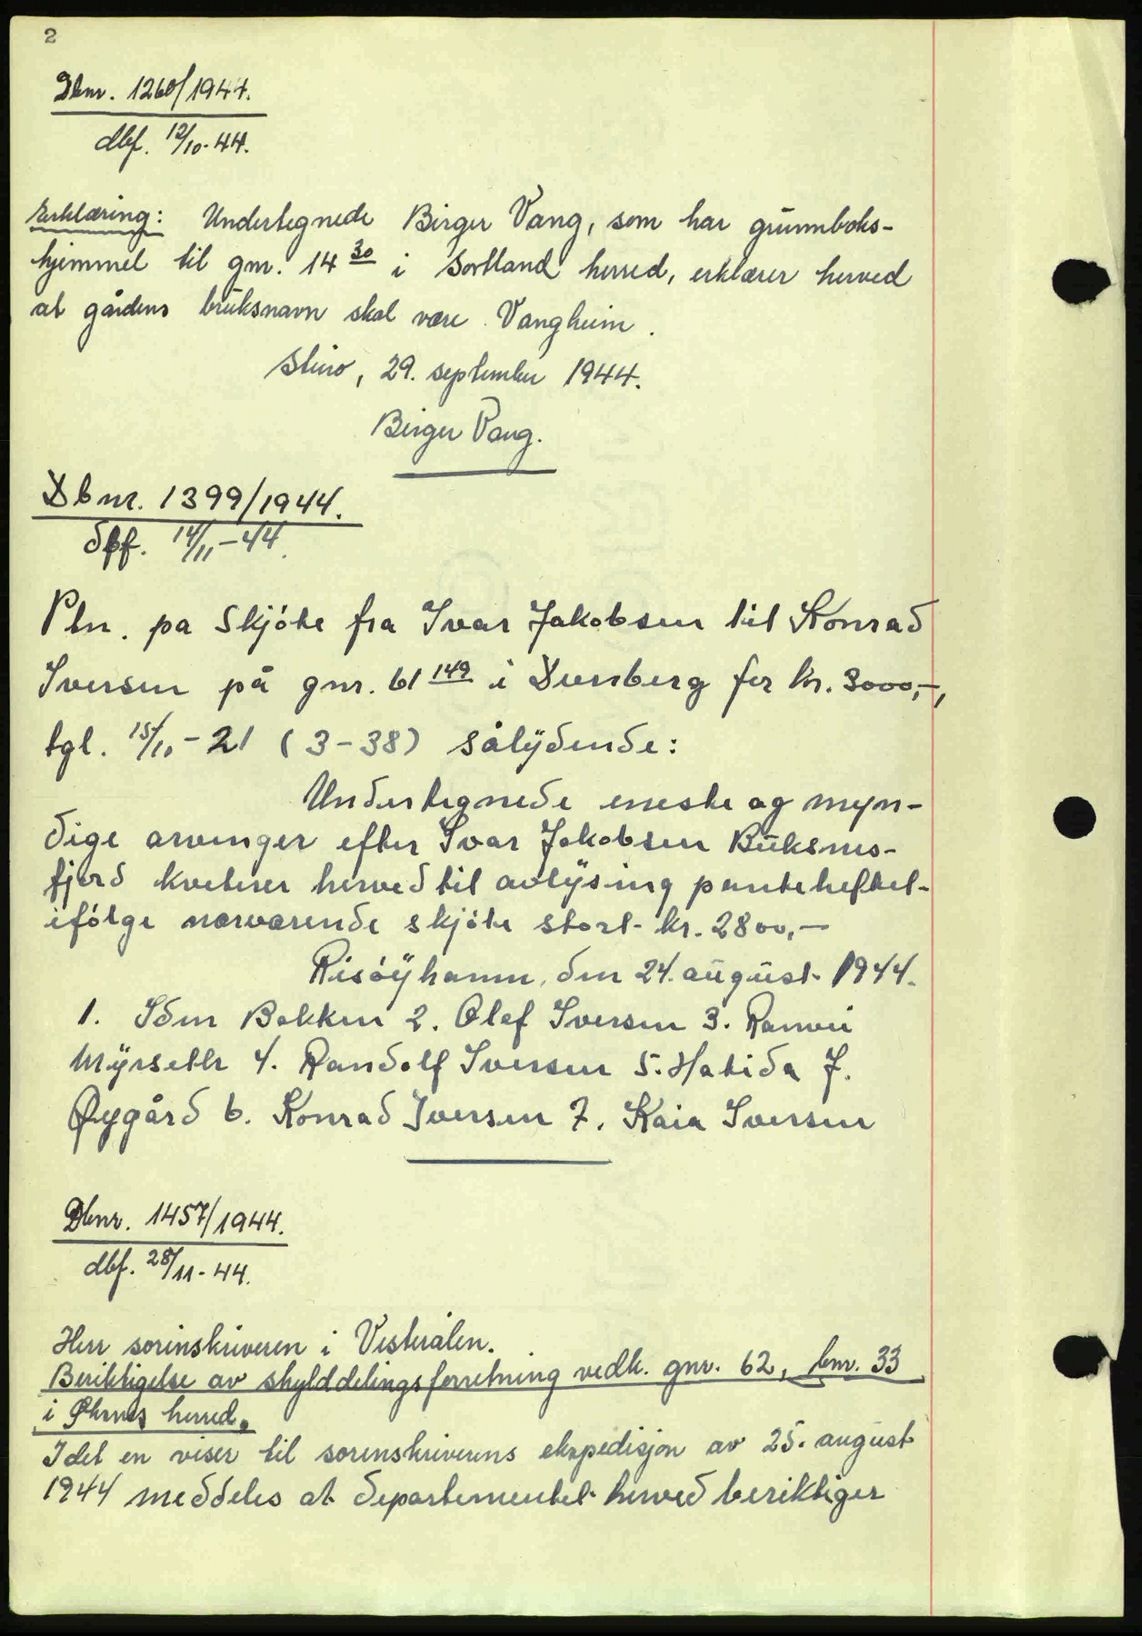 2
Dbnr. 1260/1944.
dbf. 12/10-44.
Erklæring: Undertegnede Birger Vang, som har grunnboks-
hjemmel til gnr. 14 30 i Sortland herred, erklærer herved
at gårdens bruksnavn skal være Vangheim.
Stiro, 29. september 1944.
Birger Vang.
Dbnr. 1399/1944.
dbf. 14/11-44.
Ptn. pa Skjöte fra Ivar Jakobsen til Konrad
Iversen på gnr. 61 149 i Dverberg for kr. 3000,-,
tgl. 15/10-21 (3-38) sålydende:
Undertegnede eneste og myn-
dige arvinger efter Ivar Jakobsen Buksnes-
fjord kviterer herved til avlysing panteheftet
ifölge nærværende skjöte stort kr. 2800,-
Risöyhamn, den 24. august 1944.
1. Iden Bakken 2. Olef Iversen 3. Ranvei
Myrseth 4. Randolf Iversen 5. Hatida J.
Øygård 6. Konrad Iversen 7. Kaia Iversen
Dbnr. 1457/1944.
dbf. 28/11-44.
Herr sorenskriveren i Vesterålen.
Beriktigelse av skylddelingsforretning vedk. gnr. 62, bnr. 33
i Øksnes herred.
Idet en viser til sorenskriverens ekspedisjon av 25. august
1944 meddeles at departementet herved beriktiger